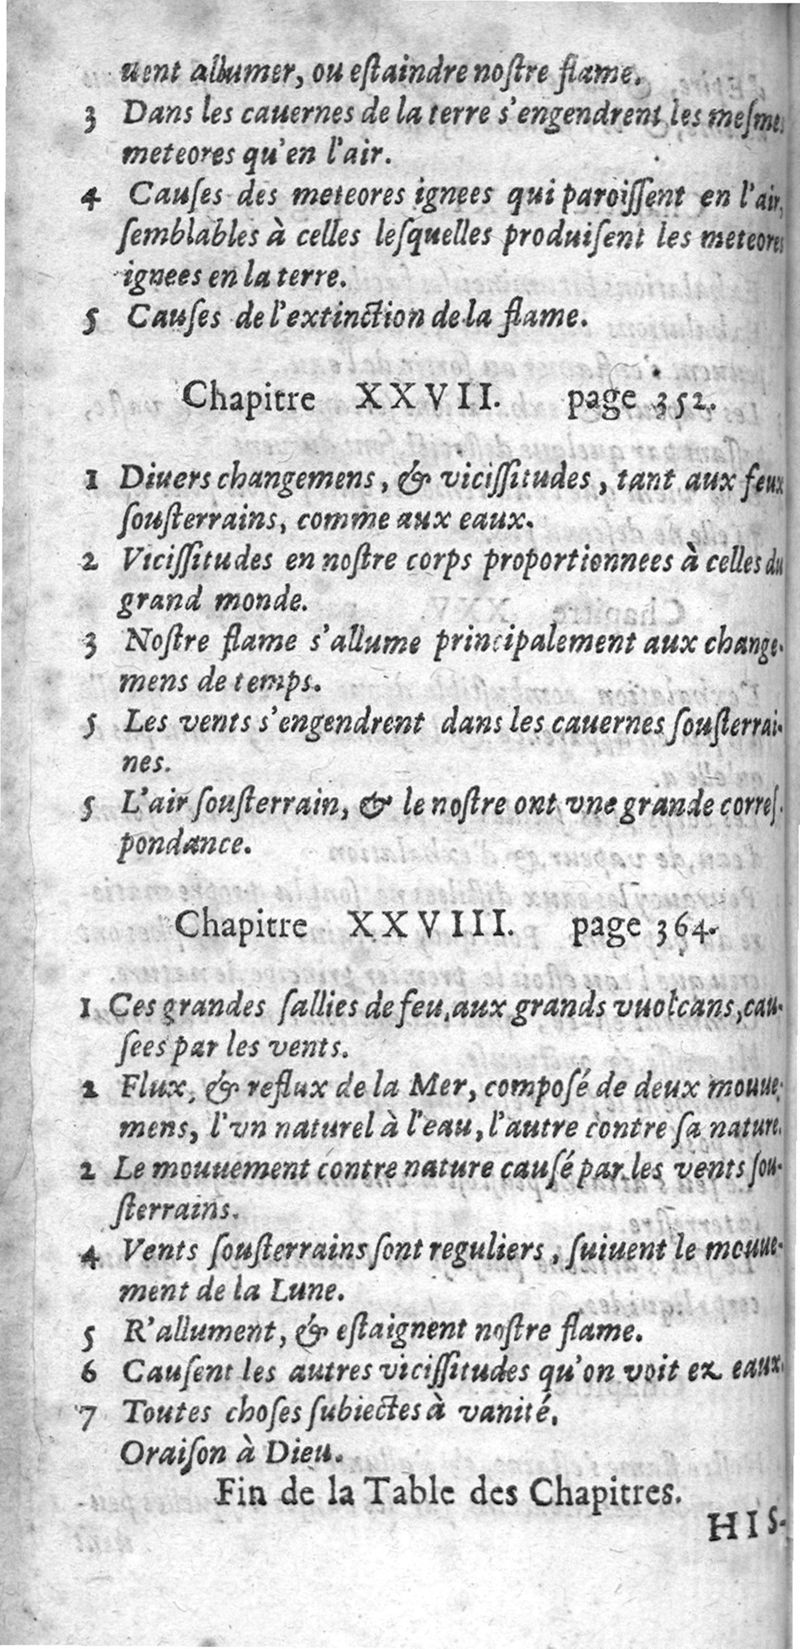 uent allumer, ou eſtaindre noſtre flame.
3 Dans les cauernes de la terre s'engendrent les meſmes
meteores qu'en l'air.
4 Cauſes des meteores ignees qui paroiſſent en l'air,
ſemblables à celles leſquelles produiſent les meteores
ignees en la terre.
5 Cauſes de l'extinction de la flame.
Chapitre XXVII. page 352.
1 Diuers changemens, & viciſſitudes, tant aux feux
ſouſterrains, comme aux eaux.
2 Viciſſitudes en noſtre corps proportionnees à celles du
grand monde.
3 Noſtre flame s'allume principalement aux change-
mens de temps.
5 Les vents s'engendrent dans les cauernes ſouſterrai-
nes.
5 L'air ſouſterrain, & le noſtre ont vne grande correſ-
pondance.
Chapitre XXVIII. page 364.
1 Ces grandes ſallies de feu, aux grands vuolcans, cau-
ſees par les vents.
2 Flux, & reflux de la Mer, compoſé de deux mouue-
mens, l'vn naturel à l'eau, l'autre contre ſa nature.
2 Le mouuement contre nature cauſé par les vents ſou-
ſterrains.
4 Vents ſouſterrains ſont reguliers, ſuiuent le mouue-
ment de la Lune.
5 R'allument, & eſtaignent noſtre flame.
6 Cauſent les autres viciſſitudes qu'on voit ez eaux.
7 Toutes choſes ſubiectes à vanité.
Oraiſon à Dieu.
Fin de la Table des Chapitres.
HIS-